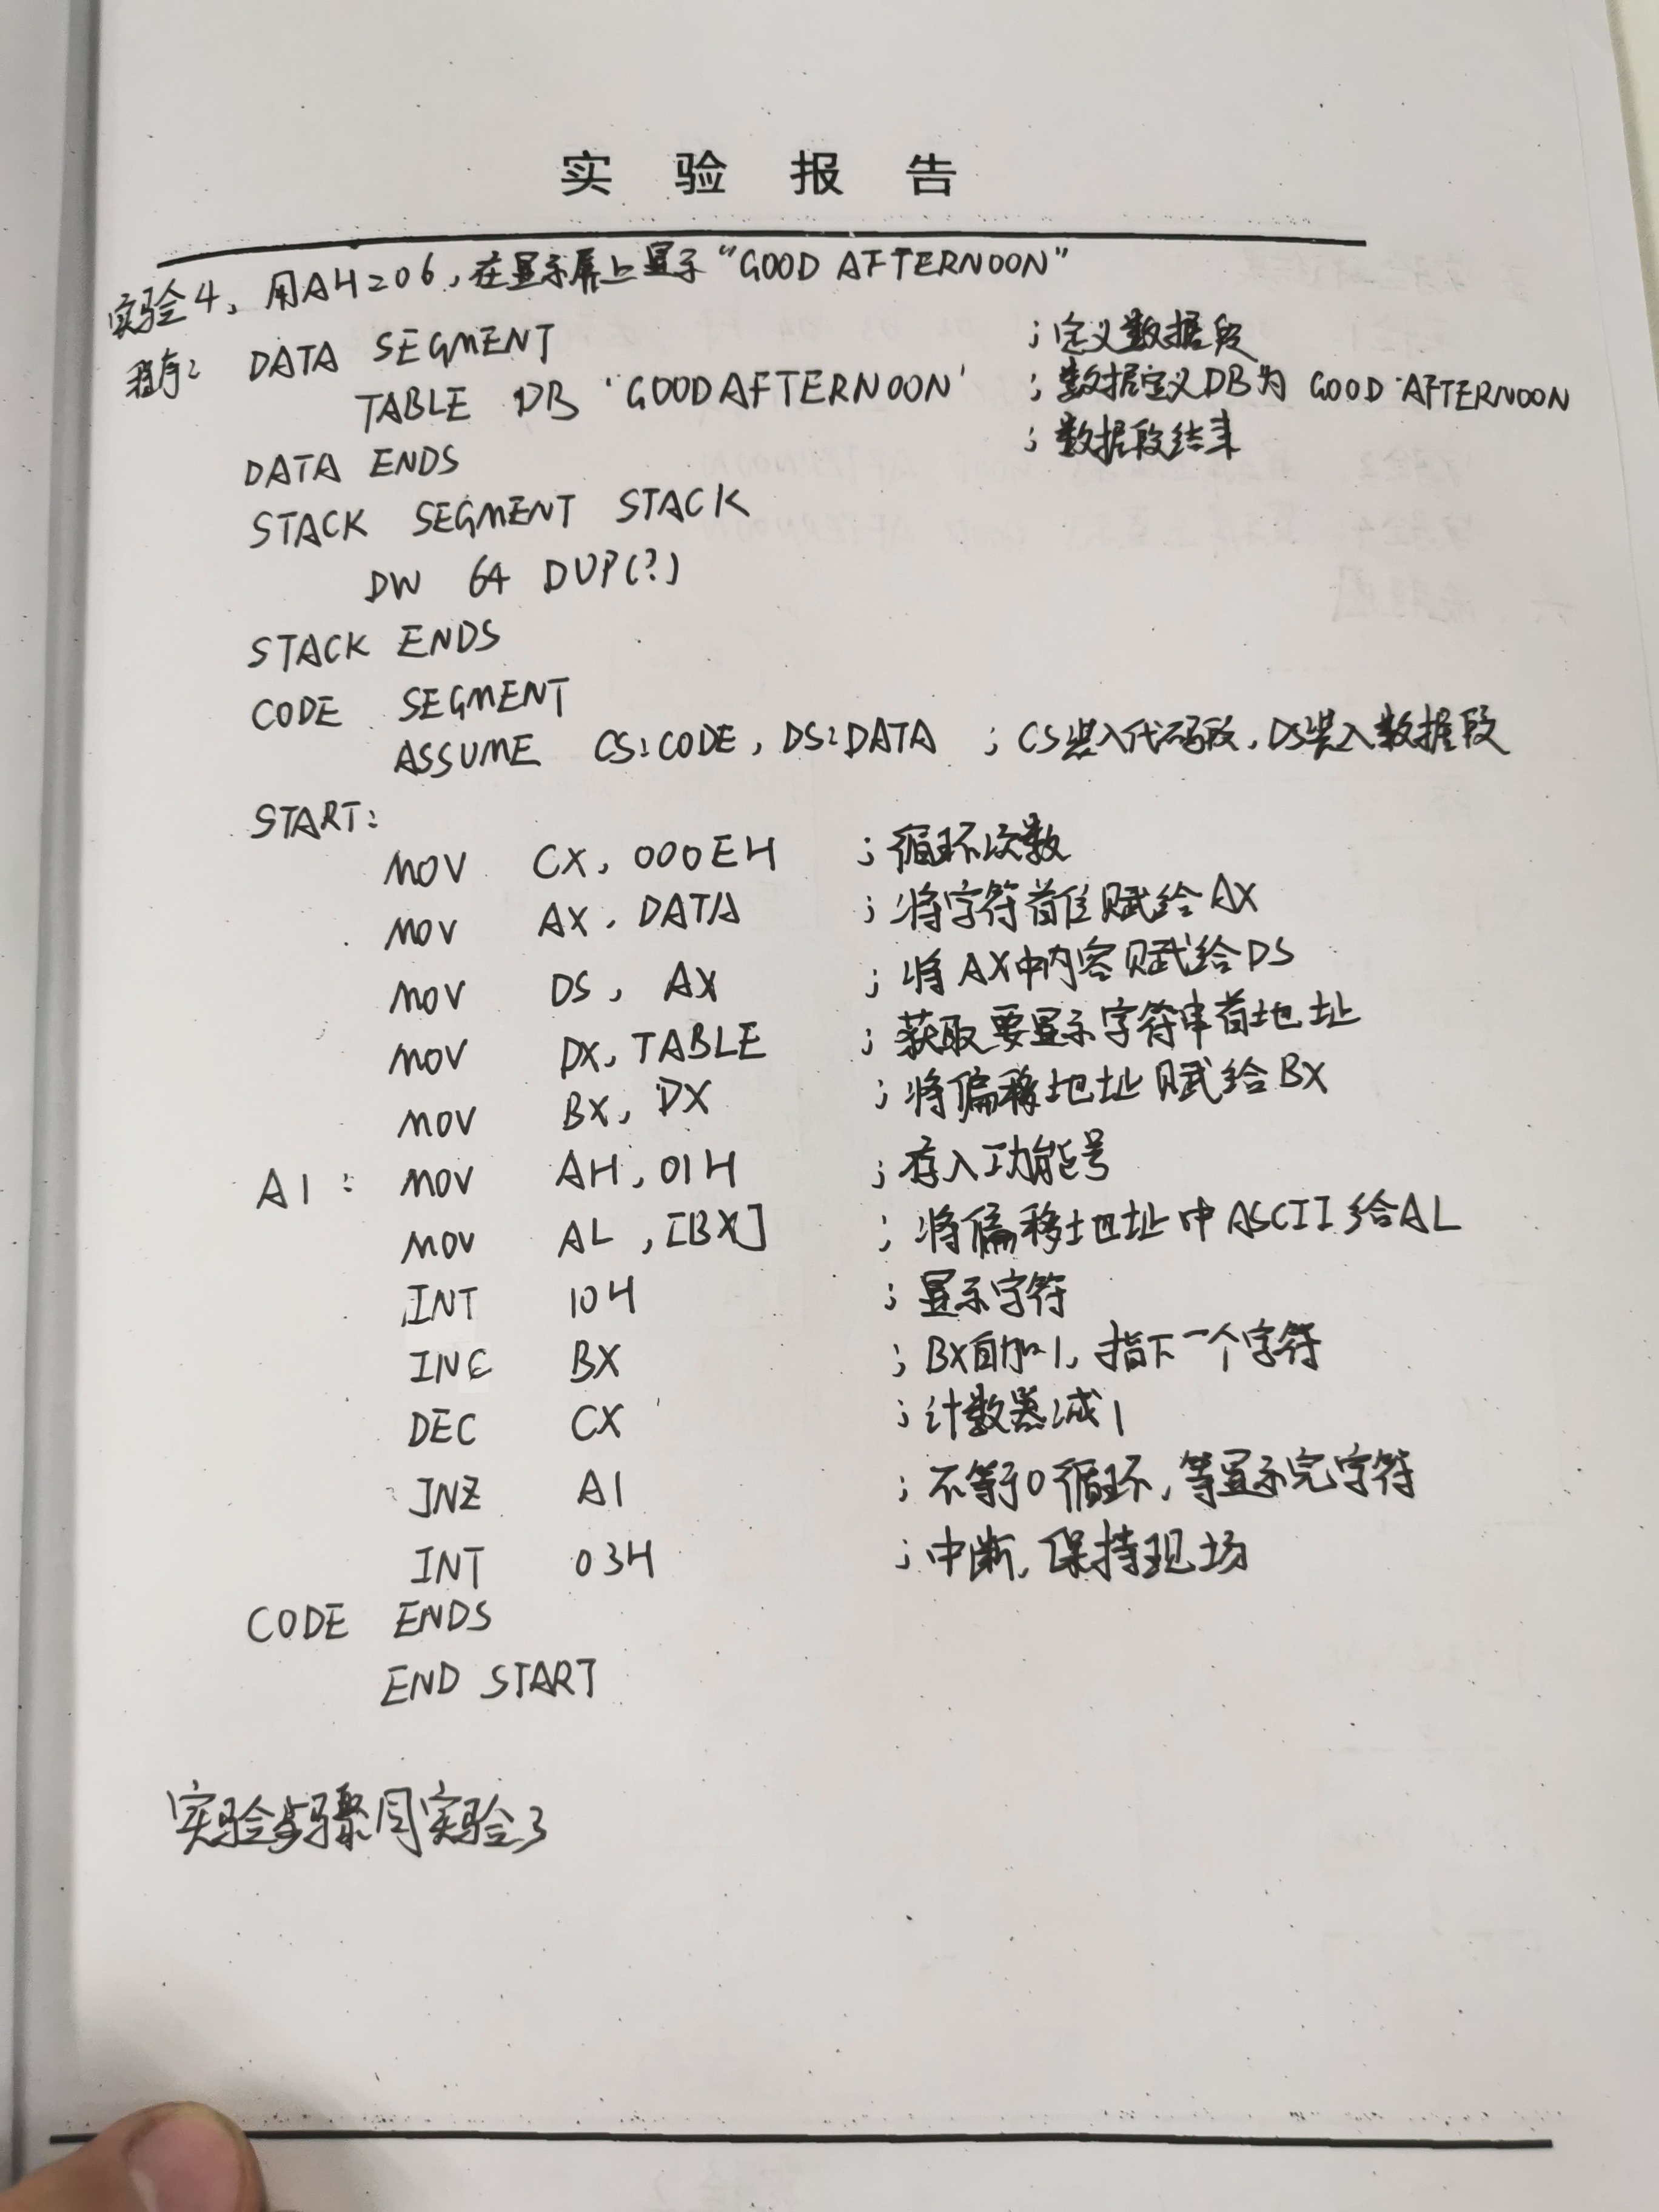 实验报告
实验4、用AH=06,在显示屏上显示“GOOD AFTERNOON”
程序: DATA SEGMENT ;定义数据段
TABLE DB 'GOODAFTERNOON' ;数据定义DB为 GOOD AFTERNOON
DATA ENDS ;数据段结束
STACK SEGMENT STACK
DW 64 DUP(?)
STACK ENDS
CODE SEGMENT
ASSUME CS:CODE, DS:DATA ;CS装入代码段,DS装入数据段
START:
MOV CX, 000EH ;循环次数
MOV AX, DATA ;将字符首位赋给AX
MOV DS, AX ;将AX中内容赋给DS
MOV DX, TABLE ;获取要显示字符串首地址
MOV BX, DX ;将偏移地址赋给BX
A1: MOV AH, 01H ;存入功能号
MOV AL, [BX] ;将偏移地址中ASCII给AL
INT 10H ;显示字符
INC BX ;BX自加1,指下一个字符
DEC CX ;计数器减1
JNZ A1 ;不等于0循环,等显示完字符
INT 03H ;中断,保持现场
CODE ENDS
END START
实验步骤同实验3